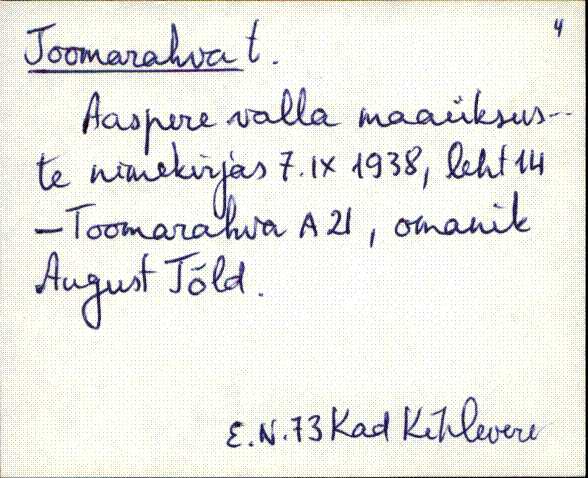 4
Toomarahva t.
Aaspere valla maaüksus-
te nimekirjas 7.IX 1938, leht 14
– Toomarahva A 21, omanik
August Tõld.
E.N.73 Kad Kihlevere